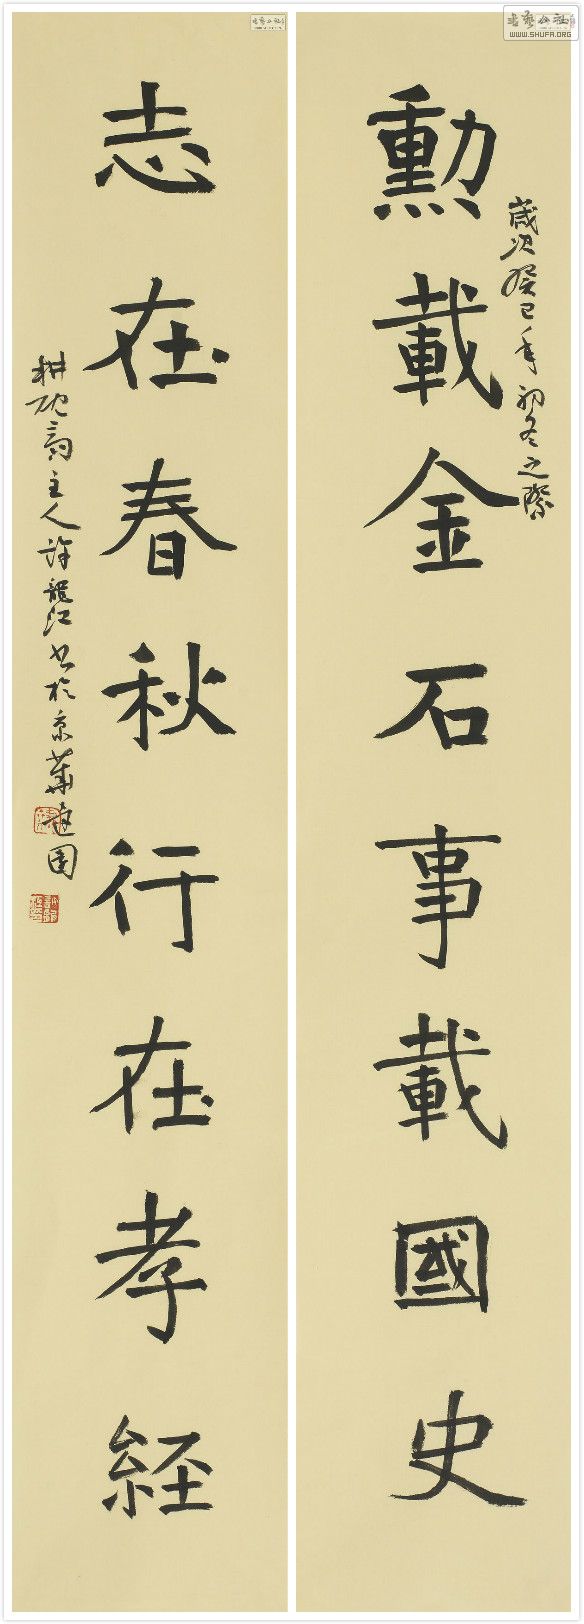 勲載金石事載國史
歲次癸巳年初冬之際
志在春秋行在孝経
耕砚斋主人许龍江书於京華逸园
书艺公社
WWW.SHUFA.ORG